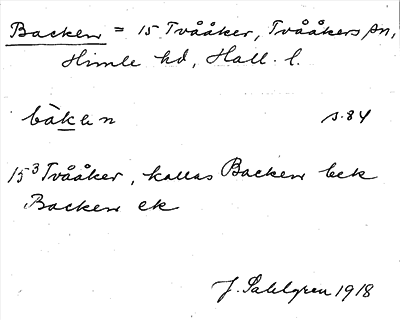 Backen = 15 Tvååker, Tvååkers sn,
Himle hd, Hall. l.
bàken s. 84
15³ Tvååker, kallas Backen bek
Backen ek
J. Sahlgren 1918